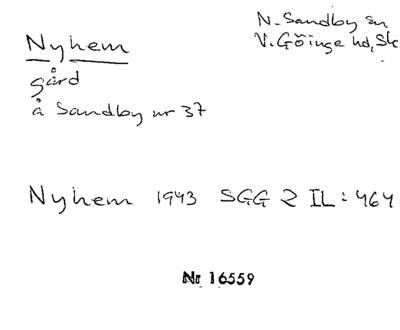 Nyhem
N. Sandby sn
V. Göinge hd, Sk
gård
å Sandby nr 37
Nyhem 1943 SGG 2 IL:464
Nr 16559